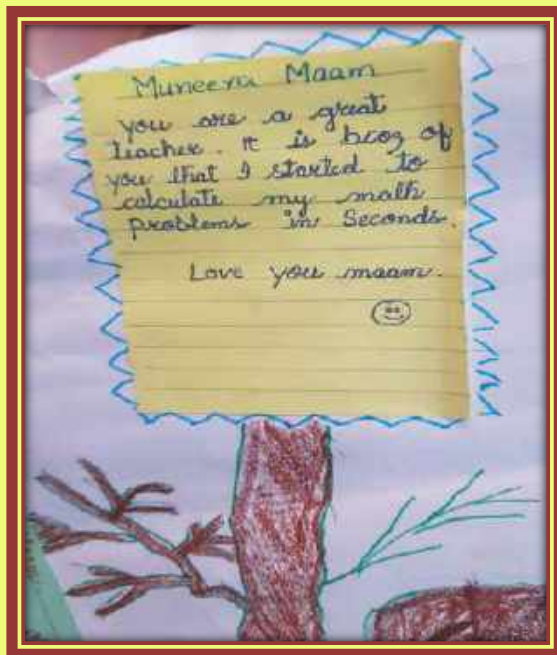 Muneera Maam
you are a great
teacher. It is bcoz of
you that I started to
calculate my math
problems in Seconds.
Love you maam.